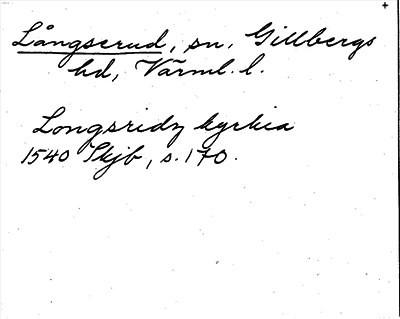 Långserud, sn, Gillbergs
hd, Värml. l.
Longsridz kyrkia
1540 Skjb, s. 170.